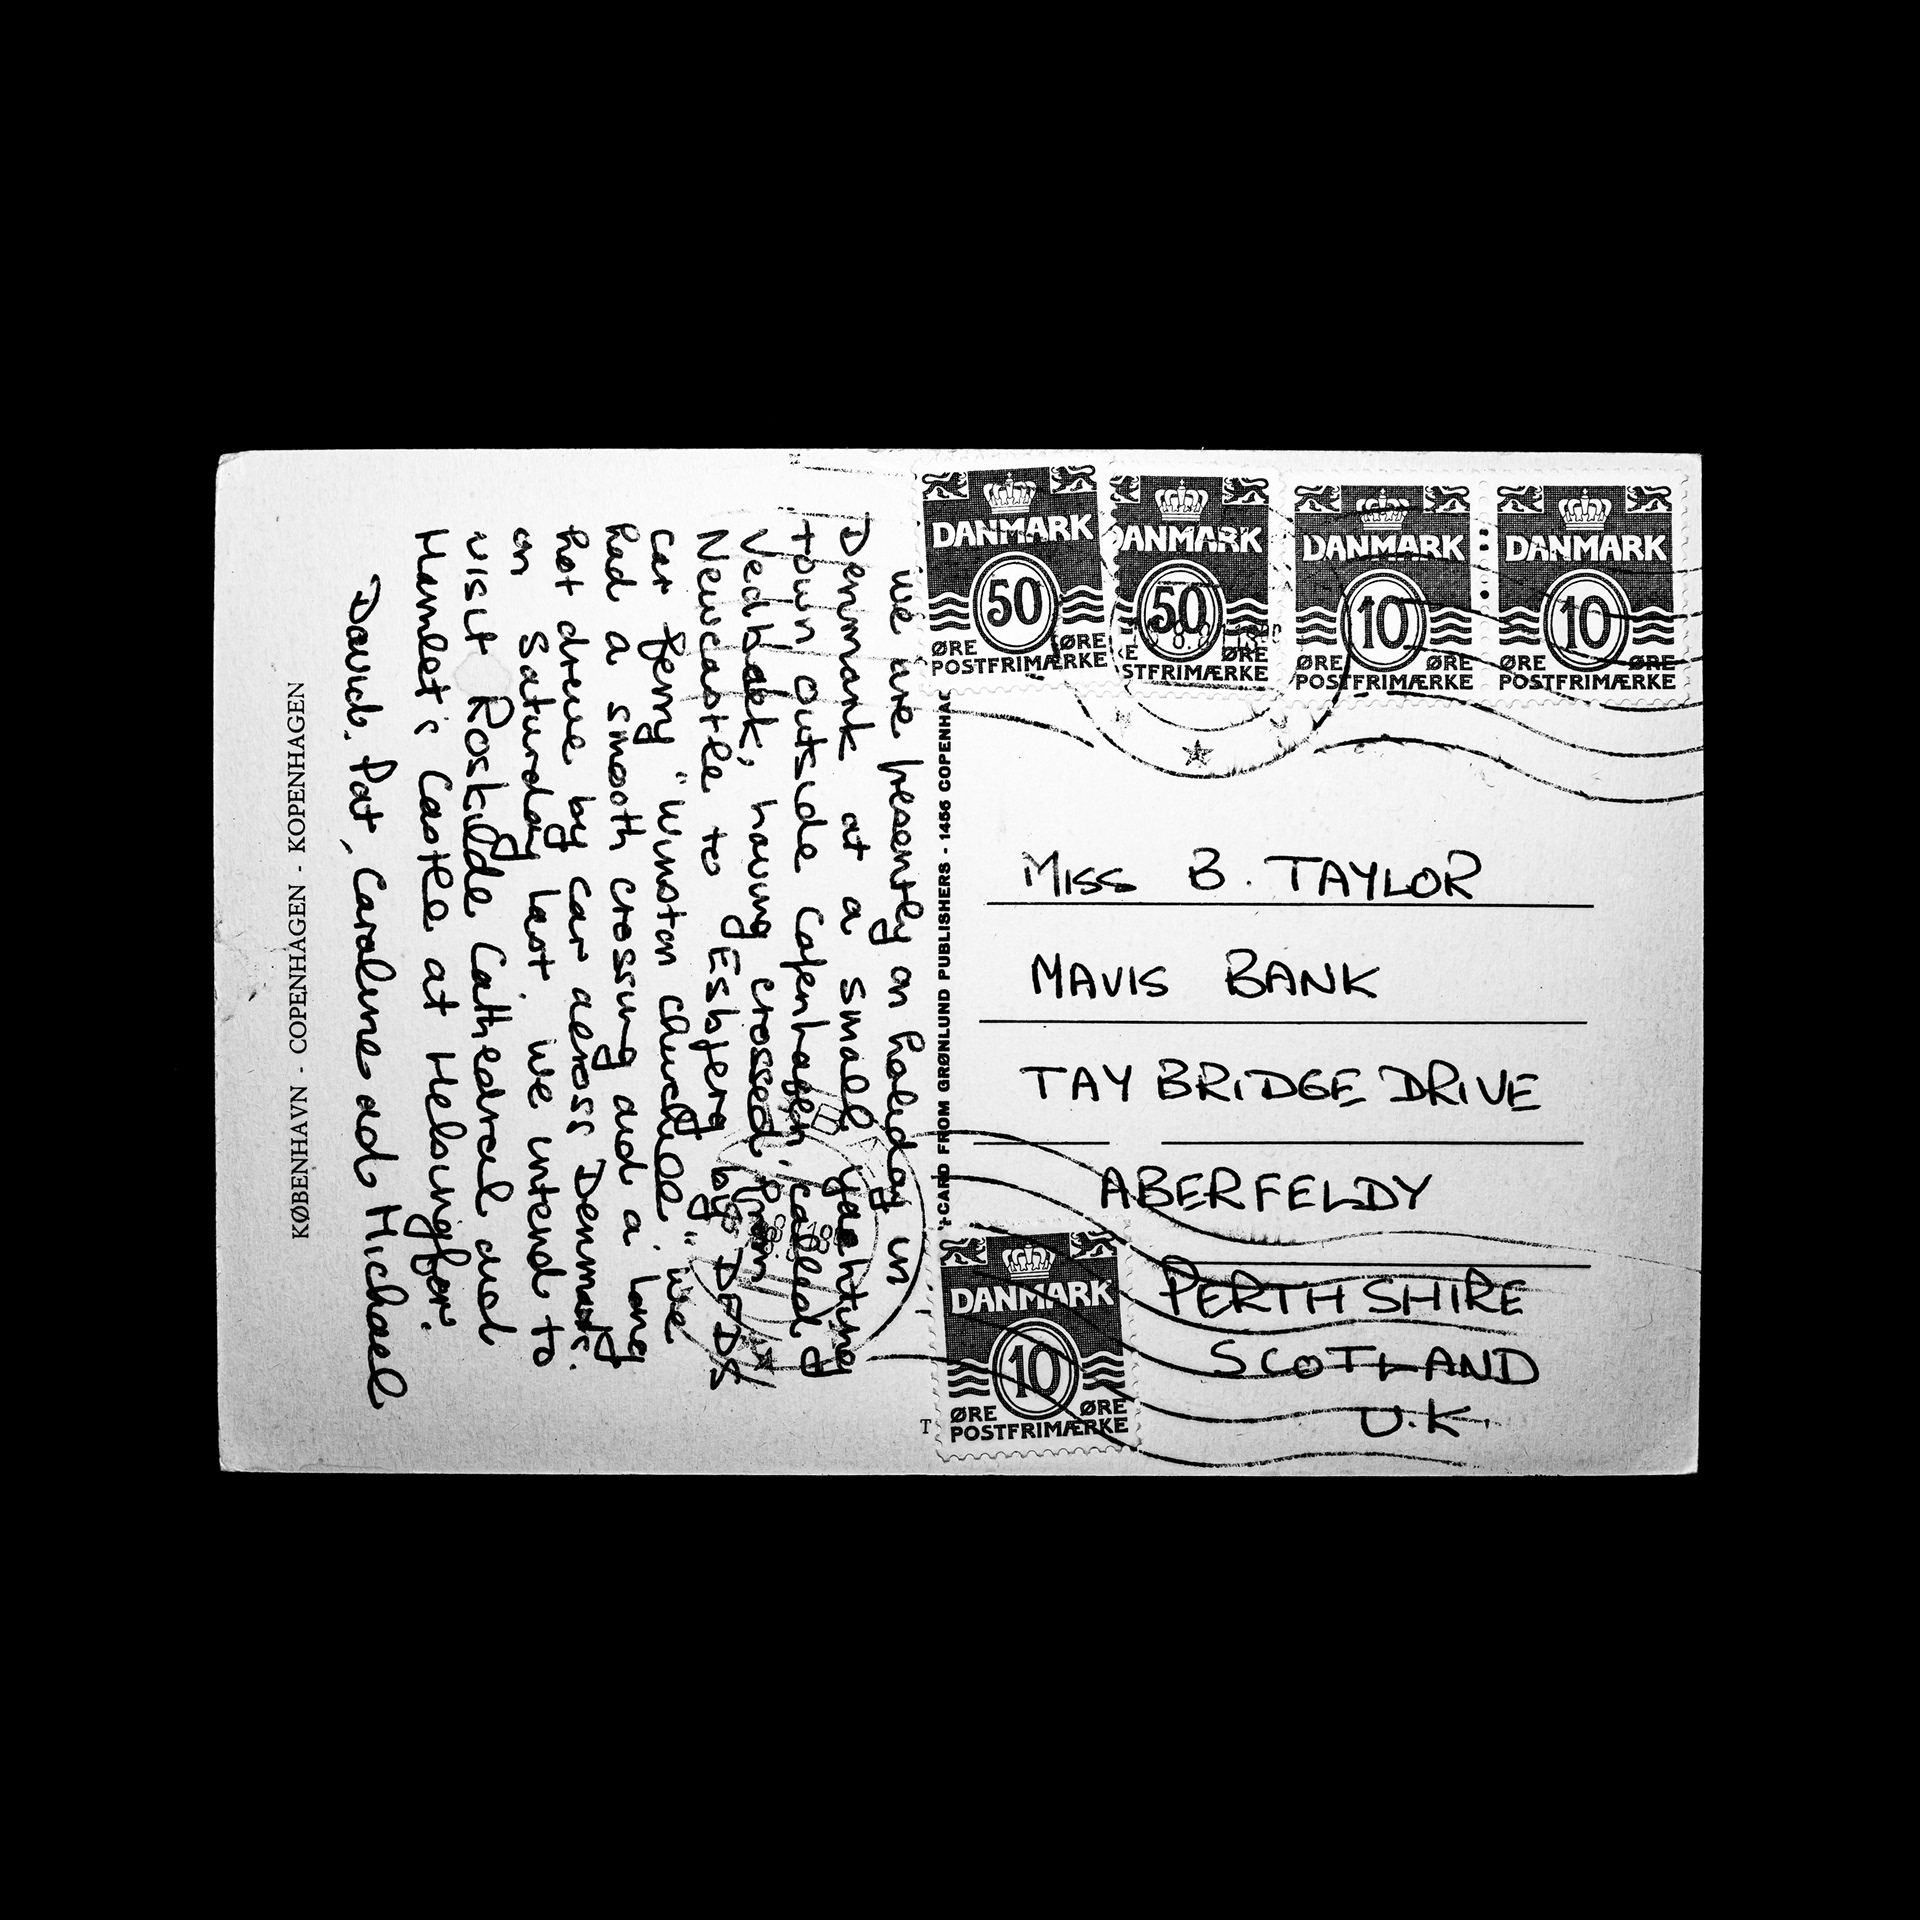 we are presently on holiday in
Denmark at a small yachting
town outside Copenhagen, called
Vedbaek, having crossed from
Newcastle to Esbjerg by DFDS
car ferry "Winston Churchill" we
had a smooth crossing and a long
hot drive by car across Denmark.
on Saturday last we intend to
visit Roskilde Cathedral and
Hamlet's Castle at Helsingfor.
David, Pat, Caroline and Michael
KØBENHAVN - COPENHAGEN - KOPENHAGEN
CARD FROM GRØNLUND PUBLISHERS - 1456 COPENHAG
DANMARK
50
ØRE ØRE
POSTFRIMÆRKE
DANMARK
50
KE ØRE
STFRIMÆRKE
DANMARK
10
ØRE ØRE
POSTFRIMÆRKE
DANMARK
10
ØRE ØRE
POSTFRIMÆRKE
MISS B. TAYLOR
MAVIS BANK
TAY BRIDGE DRIVE
ABERFELDY
PERTHSHIRE
SCOTLAND
U.K.
DANMARK
10
ØRE ØRE
POSTFRIMÆRKE
T